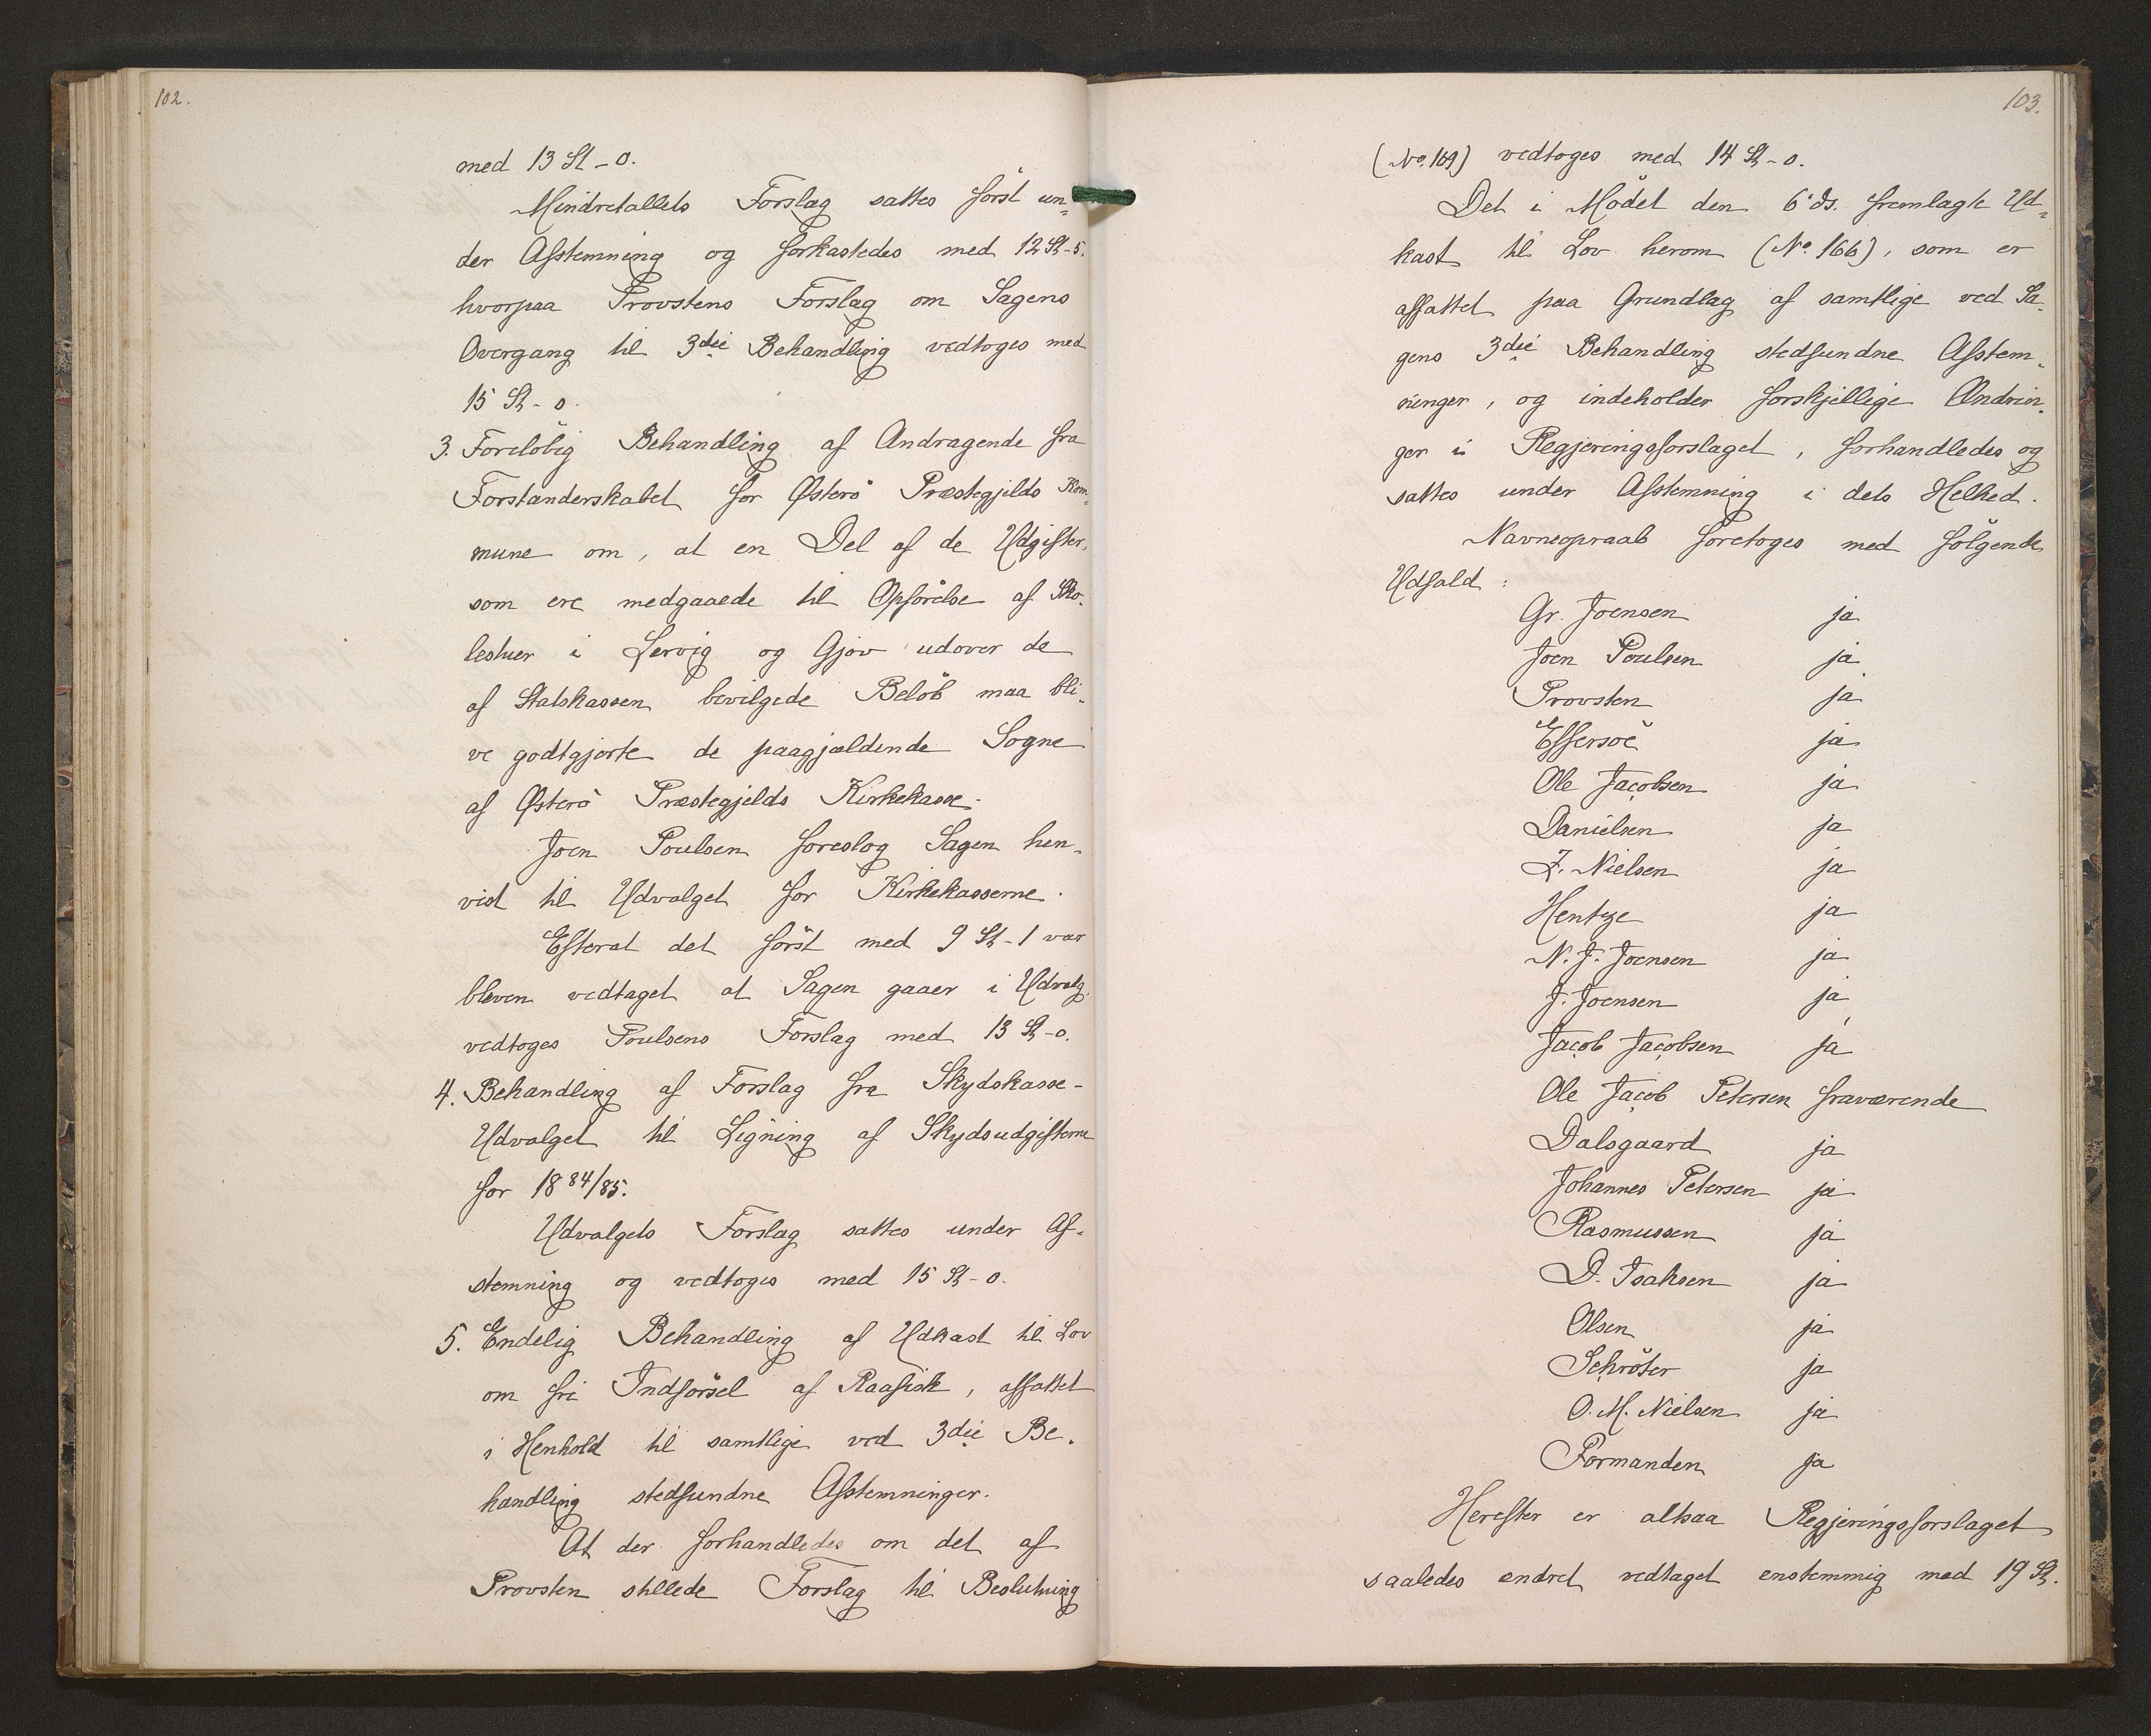 102.
med 13 St - 0.
Mindretallets Forslag sattes först un-
der Afstemning og forkastedes med 12 St - 5.
hvorpaa Provstens Forslag om Sagens
Overgang til 3die Behandling vedtoges med
15 St - 0.
3. Forelöbig Behandling af Andragende fra
Forstanderskabet for Østerö Præstegjelds Kom-
mune om, at en Del af de Udgifter,
som ere medgaaede til Opförelse af Sko-
lestuer i Lervig og Gjov udover de
af Statskassen bevilgede Belöb maa bli-
ve godtgjorte de paagjældende Sogne
af Østerö Præstegjelds Kirkekasse.
Joen Poulsen foreslog Sagen hen-
vist til Udvalget for Kirkekasserne.
Efterat det först med 9 St - 1 var
bleven vedtaget at Sagen gaaer i Udvalg
vedtoges Poulsens Forslag med 13 St - 0.
4. Behandling af Forslag fra Skydskasse-
Udvalget til Ligning af Skydsudgifterne
for 1884/85.
Udvalgets Forslag sattes under Af-
stemning og vedtoges med 15 St - 0.
5. Endelig Behandling af Udkast til Lov
om fri Indförsel af Raafisk, affattet
i Henhold til samtlige ved 3die Be-
handling stedfundne Afstemninger.
At der forhandledes om det af
Provsten stillede Forslag til Beslutning
103.
(No. 169) vedtoges med 14 St - 0.
Det i Mödet den 6' ds. fremlagte Ud-
kast til Lov herom (No. 166), som er
affattet paa Grundlag af samtlige ved Sa-
gens 3die Behandling stedfundne Afstem-
ninger, og indeholder forskjellige Ændrin-
ger i Regjeringsforslaget, forhandledes og
sattes under Afstemning i dets Helhed.
Navneopraab foretoges med fölgende
Udfald:
Gr. Joensen ja
Joen Poulsen ja
Provsten ja
Effersöe ja
Ole Jacobsen ja
Danielsen ja
Z. Nielsen ja
Hentze ja
N. J. Joensen ja
J. Joensen ja
Jacob Jacobsen ja
Ole Jacob Petersen fraværende
Dalsgaard ja
Johannes Petersen ja
Rasmussen ja
D. Isaksen ja
Olsen ja
Schröter ja
O. M. Nielsen ja
Formanden ja
Herefter er altsaa Regjeringsforslaget
saaledes ændret vedtaget enstemmig med 19 St.